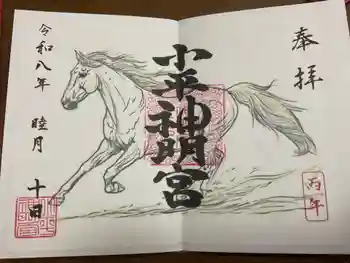 奉拝
小平神明宮
令和八年
睦月
十日
丙午